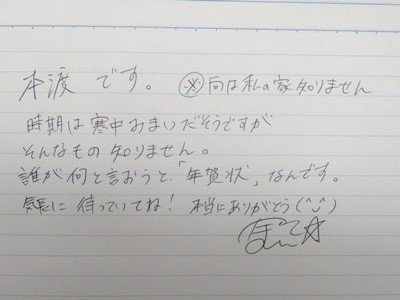 本渡 です。 ※向は私の家知りません
時期は寒中おまいだそうですが
そんなもの知りません。
誰が何と言おうと「年賀状」なんです。
気長に待っていてね! 本当にありがとう(^^)